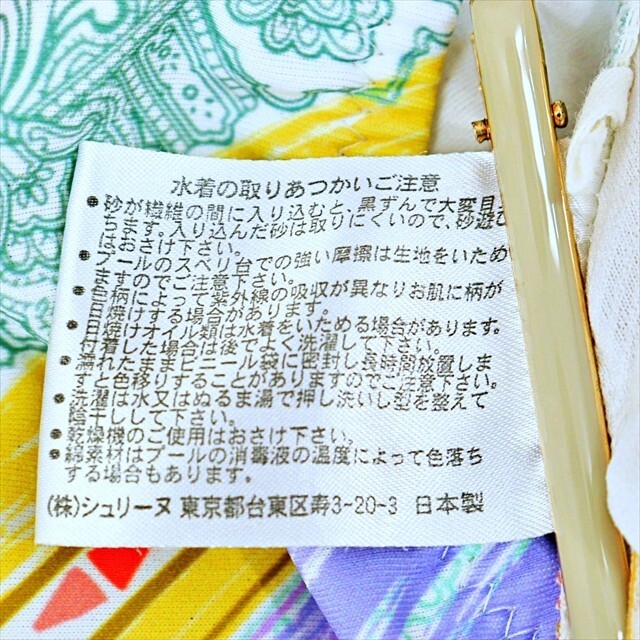 水着の取りあつかいご注意
●砂が繊維の間に入り込むと、黒ずんで大変目
ちます。入り込んだ砂は取りにくいので、砂遊び
はおさけ下さい。
●プールのスベリ台での強い摩擦は生地をいため
ますのでご注意下さい。
●色柄によって紫外線の吸収が異なりお肌に柄が
日焼けする場合があります。
●日焼けオイル類は水着をいためる場合があります。
付着した場合は後でよく洗濯して下さい。
●濡れたままビニール袋に密封し長時間放置しま
すと色移りすることがありますのでご注意下さい。
●洗濯は水又はぬるま湯で押し洗いし型を整えて
陰干しして下さい。
●乾燥機のご使用はおさけ下さい。
●綿素材はプールの消毒液の温度によって色落ち
する場合もあります。
(株)シュリーヌ 東京都台東区寿3-20-3 日本製